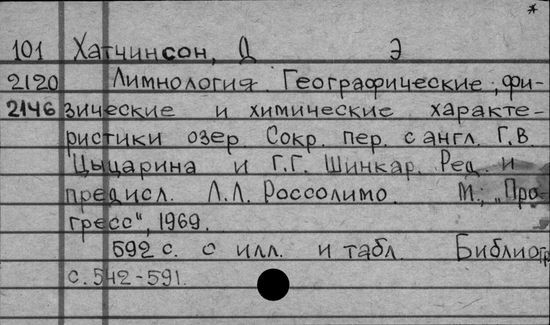 *
101 Хатчинсон, Д Э
2120 Лимнология Географические, фи-
2146 зические и химические характе-
ристики озер. Сокр. пер. с англ. Г.В.
Цыцарина и Г.Г. Шинкар. Ред. и
предисл. Л.Л. Россолимо. М.; „Про-
гресс", 1969.
592 с. с илл. и табл. Библиогр
с. 542-591.